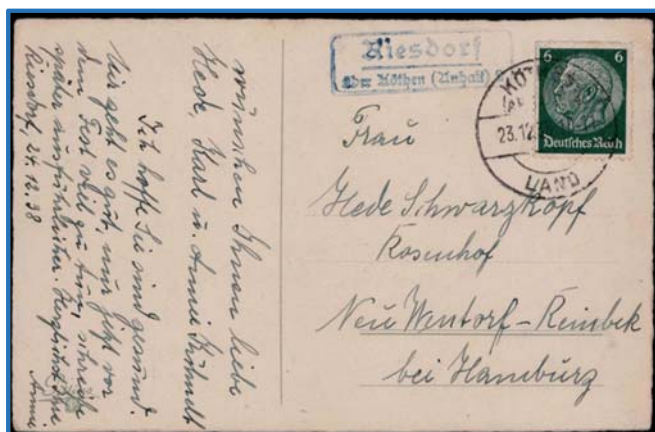 Riesdorf
über Köthen (Anhalt)
6 6
Deutsches Reich
KÖT
23.12.
LAND
Frau
Hede Schwarzkopf
Rosenhof
Neu Wentorf-Reinbek
bei Hamburg
wünschen Ihnen liebe
Hede, Karl u. Annie
Ich hoffe Sie sind gesund.
Mir geht es gut, nur jetzt vor
dem Fest viel zu tun, schreibe
später ausführlicher. Herzlichst Ihre
Annie
Riesdorf, 24.12.38